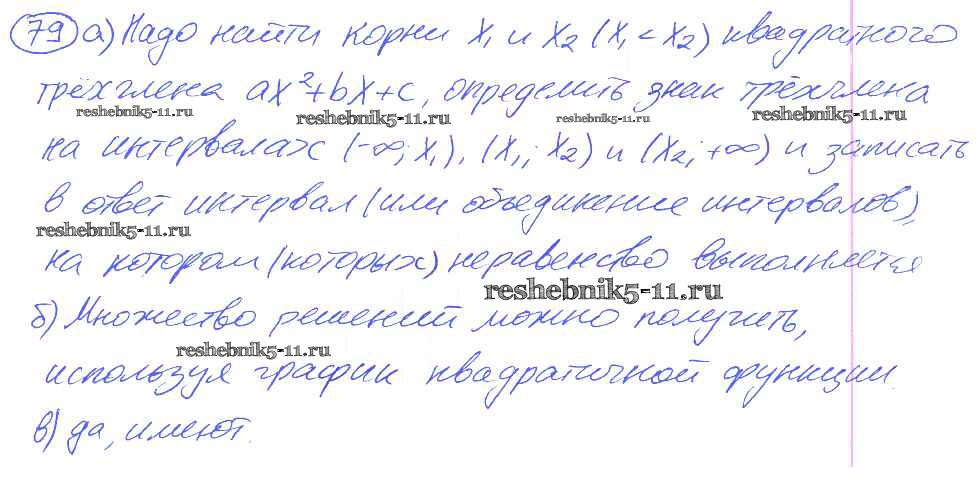 79 а) Надо найти корни x₁ и x₂ (x₁ < x₂) квадратного
трёхчлена ax²+bx+c, определить знак трёхчлена
reshebnik5-11.ru reshebnik5-11.ru reshebnik5-11.ru reshebnik5-11.ru
на интервалах (-∞; x₁), (x₁; x₂) и (x₂; +∞) и записать
в ответ интервал (или объединение интервалов),
reshebnik5-11.ru
на котором (которых) неравенство выполняется
reshebnik5-11.ru
б) Множество решений можно получить,
reshebnik5-11.ru
используя график квадратичной функции.
в) да, имеют.